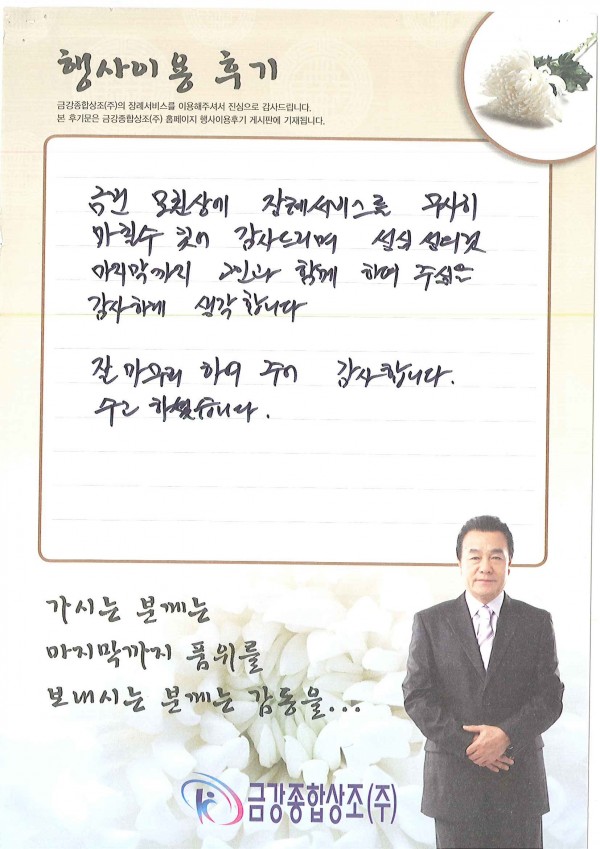 행사이용 후기
금강종합상조(주)의 장례서비스를 이용해주셔서 진심으로 감사드립니다.
본 후기문은 금강종합상조(주) 홈페이지 행사이용후기 게시판에 기재됩니다.
금번 모친상에 장례서비스를 무사히
마칠수 있어 감사드리며
마지막까지 고인과 함께 하여 주심을
감사하게 생각합니다
잘 마무리 하여 주어 감사합니다.
수고 하셨습니다.
가시는 분께는
마지막까지 품위를
보내시는 분께는 감동을...
금강종합상조(주)